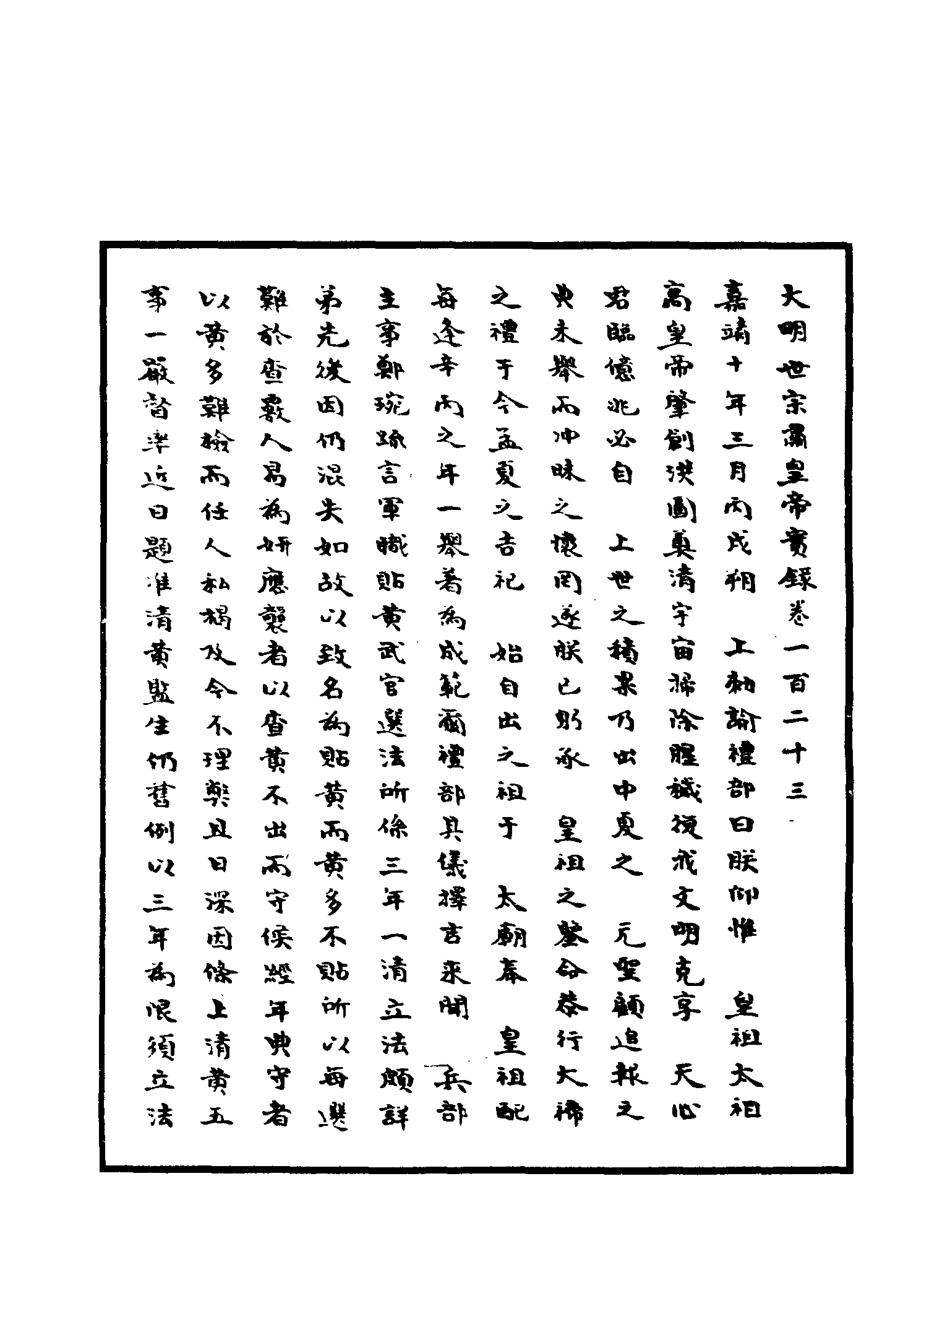 大明世宗肅皇帝實錄卷一百二十三
嘉靖十年三月丙戌朔　上勑諭禮部曰朕仰惟　皇祖太祖
高皇帝肇創洪圖奠清宇宙滌除腥穢復我文明克享　天心
君臨億兆必自　上世之積累乃出中夏之　元聖顧追報之
典未舉而沖昧之懷罔遂朕已躬承　皇祖之鑒命恭行大禘
之禮于今孟夏之吉祀　始自出之祖于　太廟奉　皇祖配
每逢辛丙之年一舉著為成範爾禮部具儀擇吉來聞　兵部
主事鄭琬疏言軍職貼黃武官選法所係三年一清立法頗詳
弟先後因仍混失如故以致名為貼黃而黃多不貼所以每選
難於查覈人易為姧應襲者以查黃不出而守候經年典守者
以黃多難檢而任人私揭及今不理獘且日深因條上清黃五
事一嚴督率近日題准清黃監生仍舊例以三年為限須立法